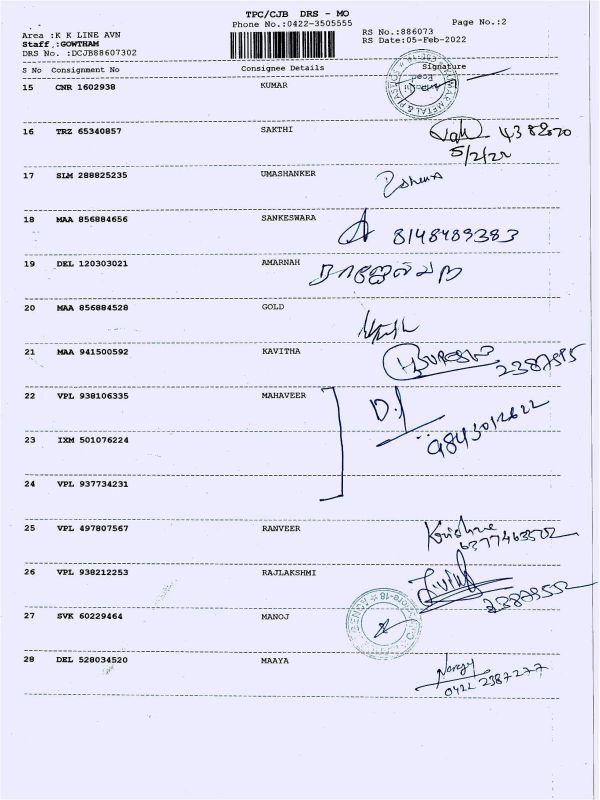 TPC/CJB DRS - MO
Phone No.:0422-3505555
Page No.:2
Area :K K LINE AVN
Staff :GOWTHAM
DRS No. :DCJB88607302
RS No.:886073
RS Date:05-Feb-2022
S No Consignment No Consignee Details Signature
15 CNR 1602938 KUMAR
16 TRZ 65340857 SAKTHI
5/2/22
17 SLM 288825235 UMASHANKER
18 MAA 856884656 SANKESWARA
8148489383
19 DEL 120303021 AMARNAH
20 MAA 856884528 GOLD
21 MAA 941500592 KAVITHA
22 VPL 938106335 MAHAVEER
23 IXM 501076224
24 VPL 937734231
25 VPL 497807567 RANVEER
26 VPL 938212253 RAJLAKSHMI
27 SVK 60229464 MANOJ
28 DEL 528034520 MAAYA
0422 2387277